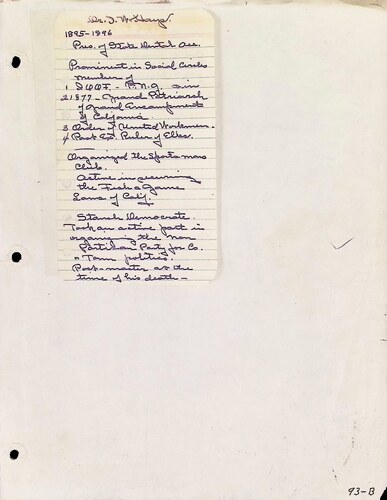 Dr. J. W. Hays.
1895-1896
Pres. of State Dental Ass.
Prominent in Social Circles
Member of
1 I.O.O.F. - P.N.G.
2 1877 - Grand Patriarch
of Grand Encampment
of California
3 Order of United Workmen.
4 Past Ex. Ruler of Elks.
Organized the Sportsmans
Club.
Active in securing
the Fish & Game
Laws of Calif.
Stanch Democrate.
Took an active part in
organizing the non
Partisan Party for Co.
" Town politics.
Post-master at the
time of his death -
93-B